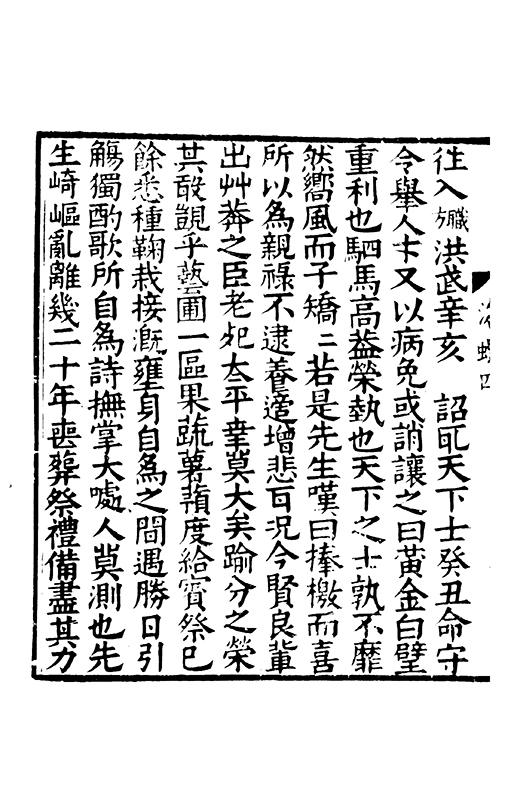 往入職方洪武辛亥　詔取天下士癸丑命守
令舉人才又以病免或誚讓之曰黃金白璧
重利也駟馬高蓋榮埶也天下之士孰不靡
然嚮風而子矯二若是先生嘆曰捧檄而喜
所以為親祿不逮養適增悲耳況今賢良輩
出艸莽之臣老死太平幸莫大矣踰分之榮
其敢覬乎蓺圃一區果蔬薯蕷度給賓祭已
餘悉種鞠栽接溉壅身自為之間遇勝日引
觴獨酌歌所自為詩撫掌大噱人莫測也先
生崎嶇亂離幾二十年喪葬祭禮備盡其力